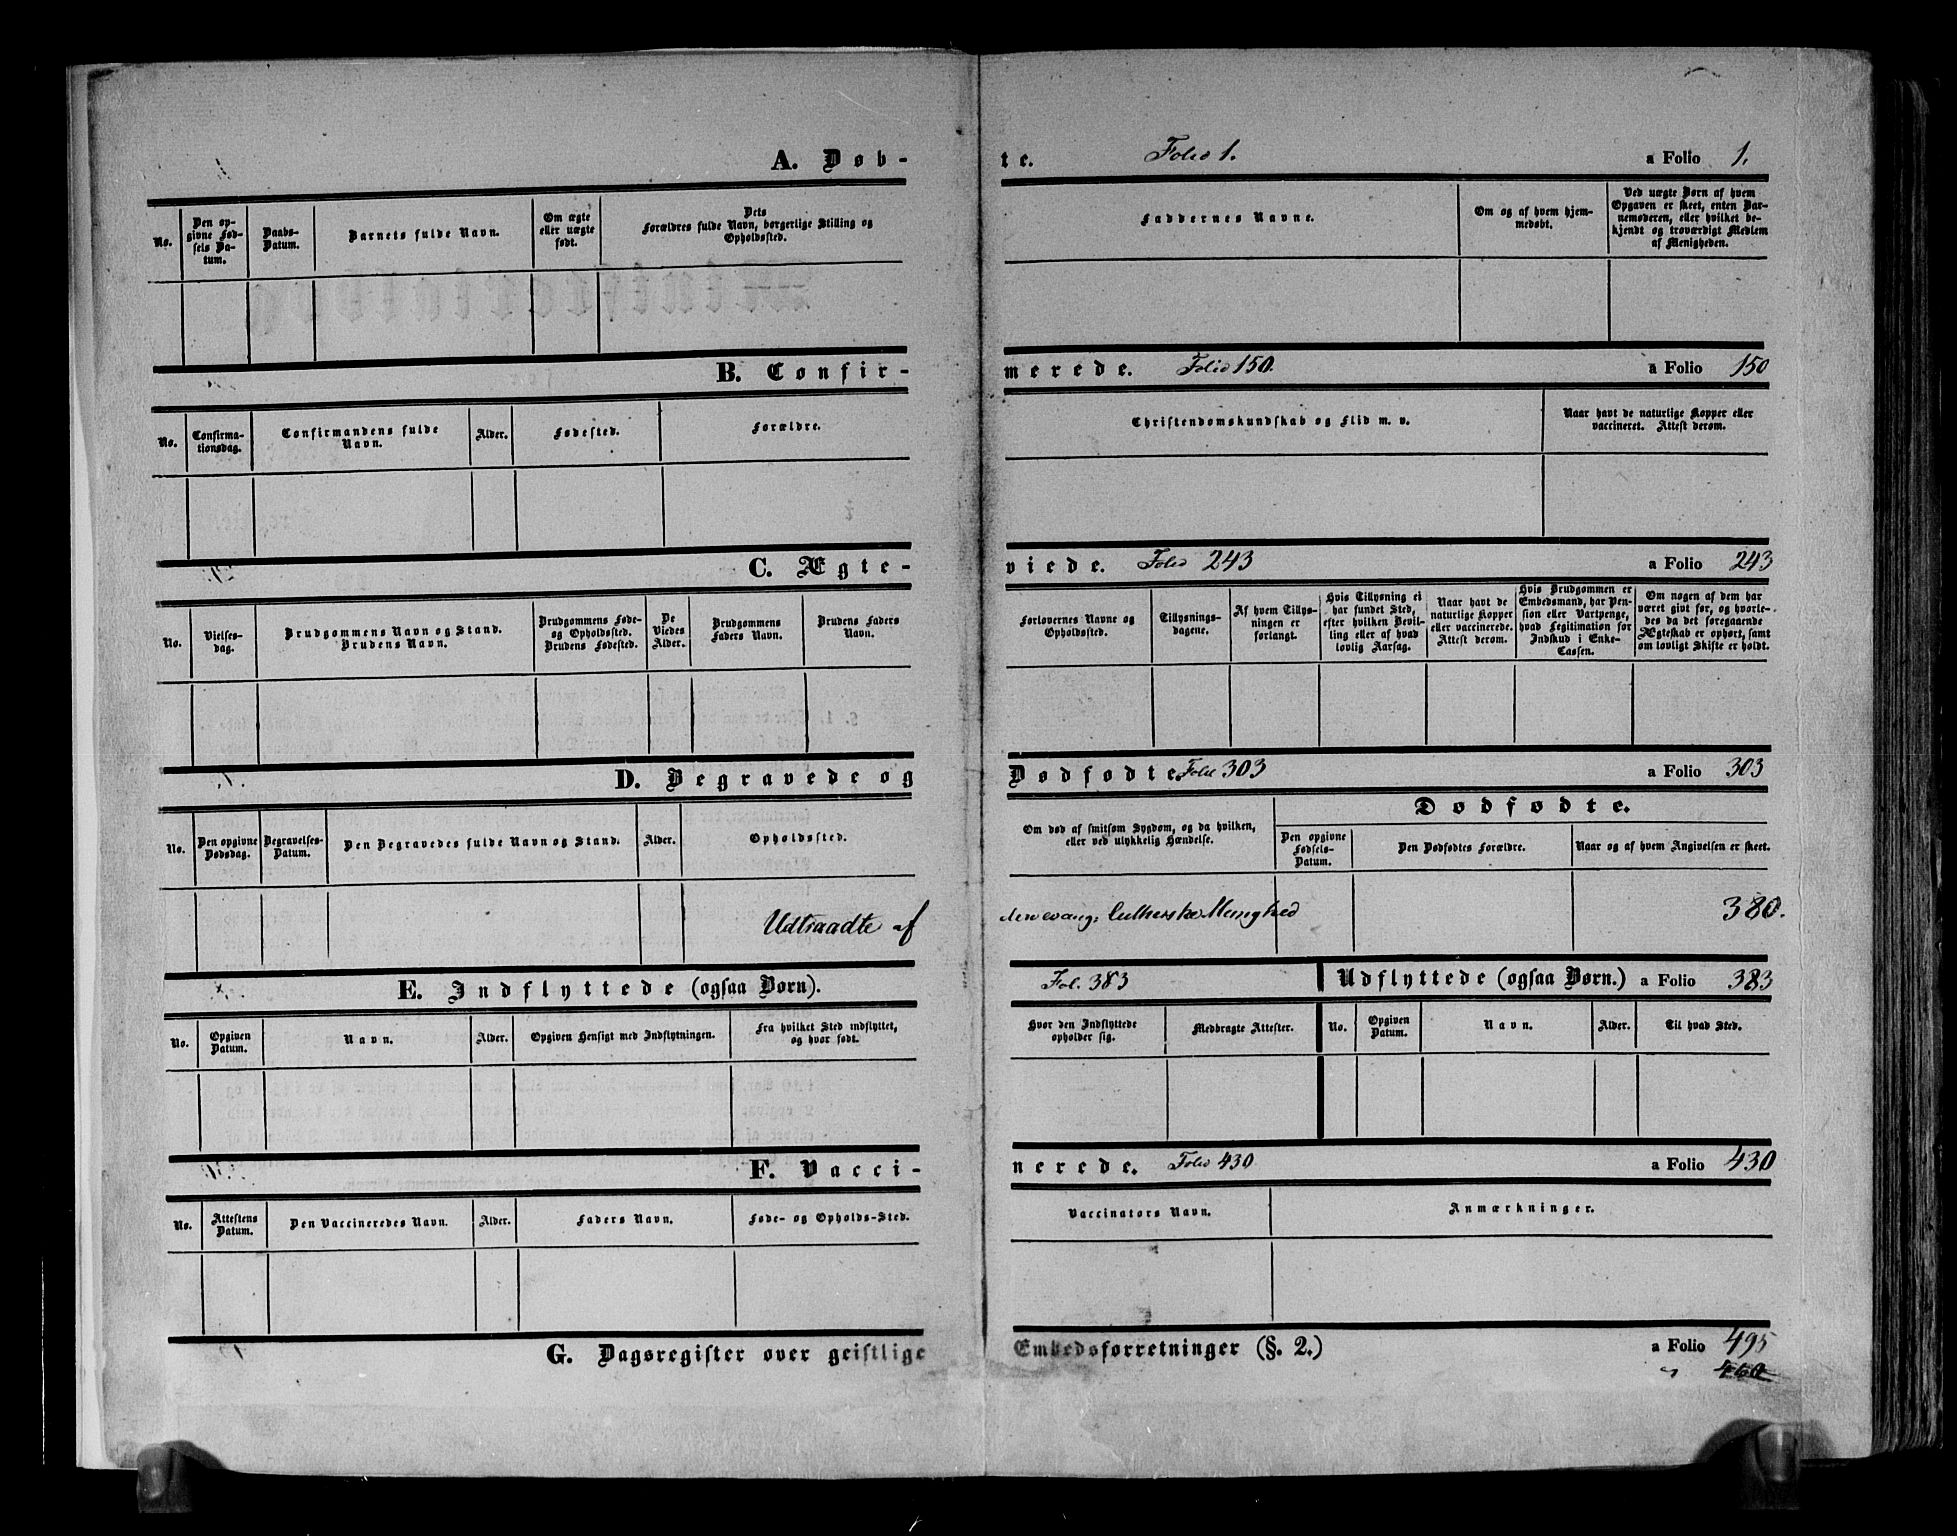 A. Døb-
te. Folio 1. a Folio 1.
No.
Den op-
givne Fød-
sels Da-
tum.
Daabs-
Datum.
Barnets fulde Navn.
Om ægte
eller uægte
født.
Dets
Forældres fulde Navn, borgerlige Stilling og
Opholdssted.
Faddernes Navne.
Om og af hvem hjem-
medøbt.
Ved uægte Børn af hvem
Opgaven er skeet, enten Bar-
nemoderen, eller hvilket be-
kjendt og troværdigt Medlem
af Menigheden.
B. Confir-
merede. Folio 150. a Folio 150
No.
Confirma-
tionsdag.
Confirmandens fulde
Navn.
Alder.
Fødested.
Forældre.
Christendomskundskab og Flid m. v.
Naar havt de naturlige Kopper eller
vaccineret. Attest derom.
C. Ægte-
viede. Folio 243 a Folio 243
No.
Vielses-
dag.
Brudgommens Navn og Stand.
Brudens Navn.
Brudgommens Føde-
og Opholdssted.
Brudens Fødested.
De
Viedes
Alder.
Brudgommens
Faders Navn.
Brudens Faders
Navn.
Forlovernes Navne og
Opholdssted.
Tillysnings-
dagene.
Af hvem Tillys-
ningen er
forlangt.
Hvis Tillysning ei
har fundet Sted,
efter hvilken Bevil-
ling eller af hvad
lovlig Aarsag.
Naar havt de
naturlige Kopper
eller vaccinerede.
Attest derom.
Hvis Brudgommen er
Embedsmand, har Pen-
sion eller Vartpenge,
hvad Legitimation for
Indskud i Enke-
Cassen.
Om nogen af dem har
været givt før, og hvorle-
des da det foregaaende
Ægteskab er ophørt, samt
om lovligt Skifte er holdt.
D. Begravede og
Dødfødte. Folio 303 a Folio 303
No.
Den opgivne
Dødsdag.
Begravelses-
Datum.
Den Begravedes fulde Navn og Stand.
Alder.
Opholdssted.
Om død af smitsom Sygdom, og da hvilken,
eller ved ulykkelig Hændelse.
Dødfødte.
Den opgivne
Fødsels-
Datum.
Den Dødfødtes Forældre.
Naar og af hvem Angivelsen er skeet.
Udtraadte af
den evang: lutherske Menighed 380.
E. Indflyttede (ogsaa Børn).
Fol. 383 Udflyttede (ogsaa Børn.) a Folio 383
No.
Opgiven
Datum.
Navn.
Alder.
Opgiven Hensigt med Indflytningen.
Fra hvilket Sted indflyttet,
og hvor født.
Hvor den Indflyttede
opholder sig.
Medbragte Attester.
No.
Opgiven
Datum.
Navn.
Alder.
Til hvad Sted.
F. Vacci-
nerede. Folio 430 a Folio 430
No.
Attestens
Datum.
Den Vaccineredes Navn.
Alder.
Faders Navn.
Føde- og Opholds-Sted.
Vaccinators Navn.
Anmærkninger.
G. Dagsregister over geistlige
Embedsforretninger (§. 2.) a Folio 495
460